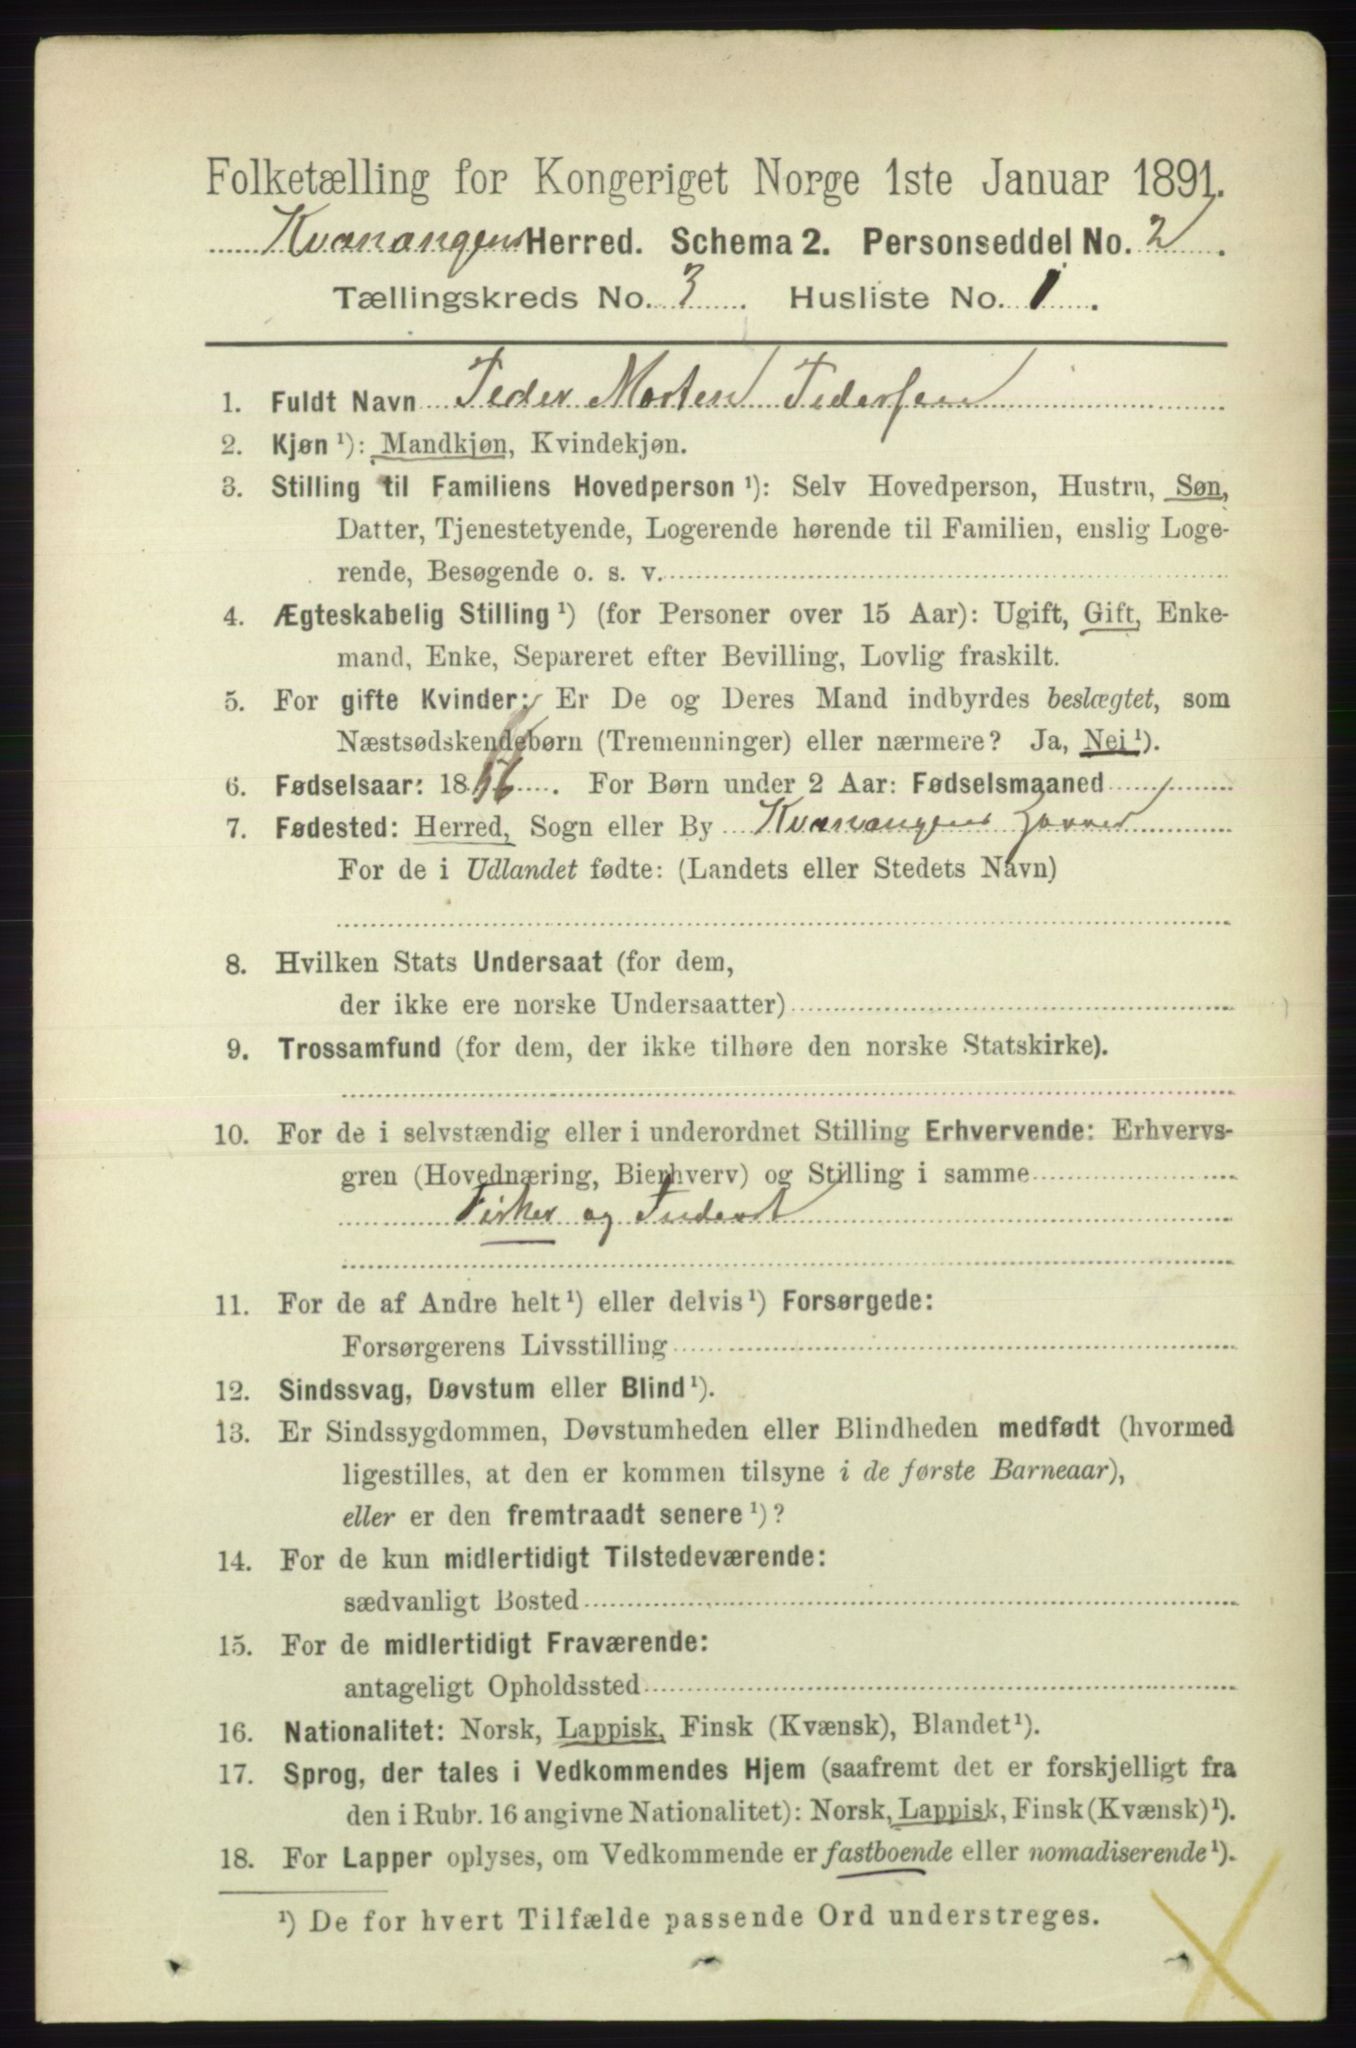 Folketælling for Kongeriget Norge 1ste Januar 1891.
Kvænangens Herred. Schema 2. Personseddel No. 2.
Tællingskreds No. 3. Husliste No. 1.
1. Fuldt Navn Peder Morten Pedersen
2. Kjøn ¹): Mandkjøn, Kvindekjøn.
3. Stilling til Familiens Hovedperson ¹): Selv Hovedperson, Hustru, Søn,
Datter, Tjenestetyende, Logerende hørende til Familien, enslig Loge-
rende, Besøgende o. s. v.
4. Ægteskabelig Stilling ¹) (for Personer over 15 Aar): Ugift, Gift, Enke-
mand, Enke, Separeret efter Bevilling, Lovlig fraskilt.
5. For gifte Kvinder: Er De og Deres Mand indbyrdes beslægtet, som
Næstsødskendebørn (Tremenninger) eller nærmere? Ja, Nei ¹).
6. Fødselsaar: 18. For Børn under 2 Aar: Fødselsmaaned
7. Fødested: Herred, Sogn eller By Kvænangens
For de i Udlandet fødte: (Landets eller Stedets Navn)
8. Hvilken Stats Undersaat (for dem,
der ikke ere norske Undersaatter)
9. Trossamfund (for dem, der ikke tilhøre den norske Statskirke).
10. For de i selvstændig eller i underordnet Stilling Erhvervende: Erhvervs-
gren (Hovednæring, Bierhverv) og Stilling i samme
Fisker og
11. For de af Andre helt ¹) eller delvis ¹) Forsørgede:
Forsørgerens Livsstilling
12. Sindssvag, Døvstum eller Blind ¹).
13. Er Sindssygdommen, Døvstumheden eller Blindheden medfødt (hvormed
ligestilles, at den er kommen tilsyne i de første Barneaar),
eller er den fremtraadt senere ¹)?
14. For de kun midlertidigt Tilstedeværende:
sædvanligt Bosted
15. For de midlertidigt Fraværende:
antageligt Opholdssted
16. Nationalitet: Norsk, Lappisk, Finsk (Kvænsk), Blandet ¹).
17. Sprog, der tales i Vedkommendes Hjem (saafremt det er forskjelligt fra
den i Rubr. 16 angivne Nationalitet): Norsk, Lappisk, Finsk (Kvænsk) ¹).
18. For Lapper oplyses, om Vedkommende er fastboende eller nomadiserende ¹).
¹) De for hvert Tilfælde passende Ord understreges.